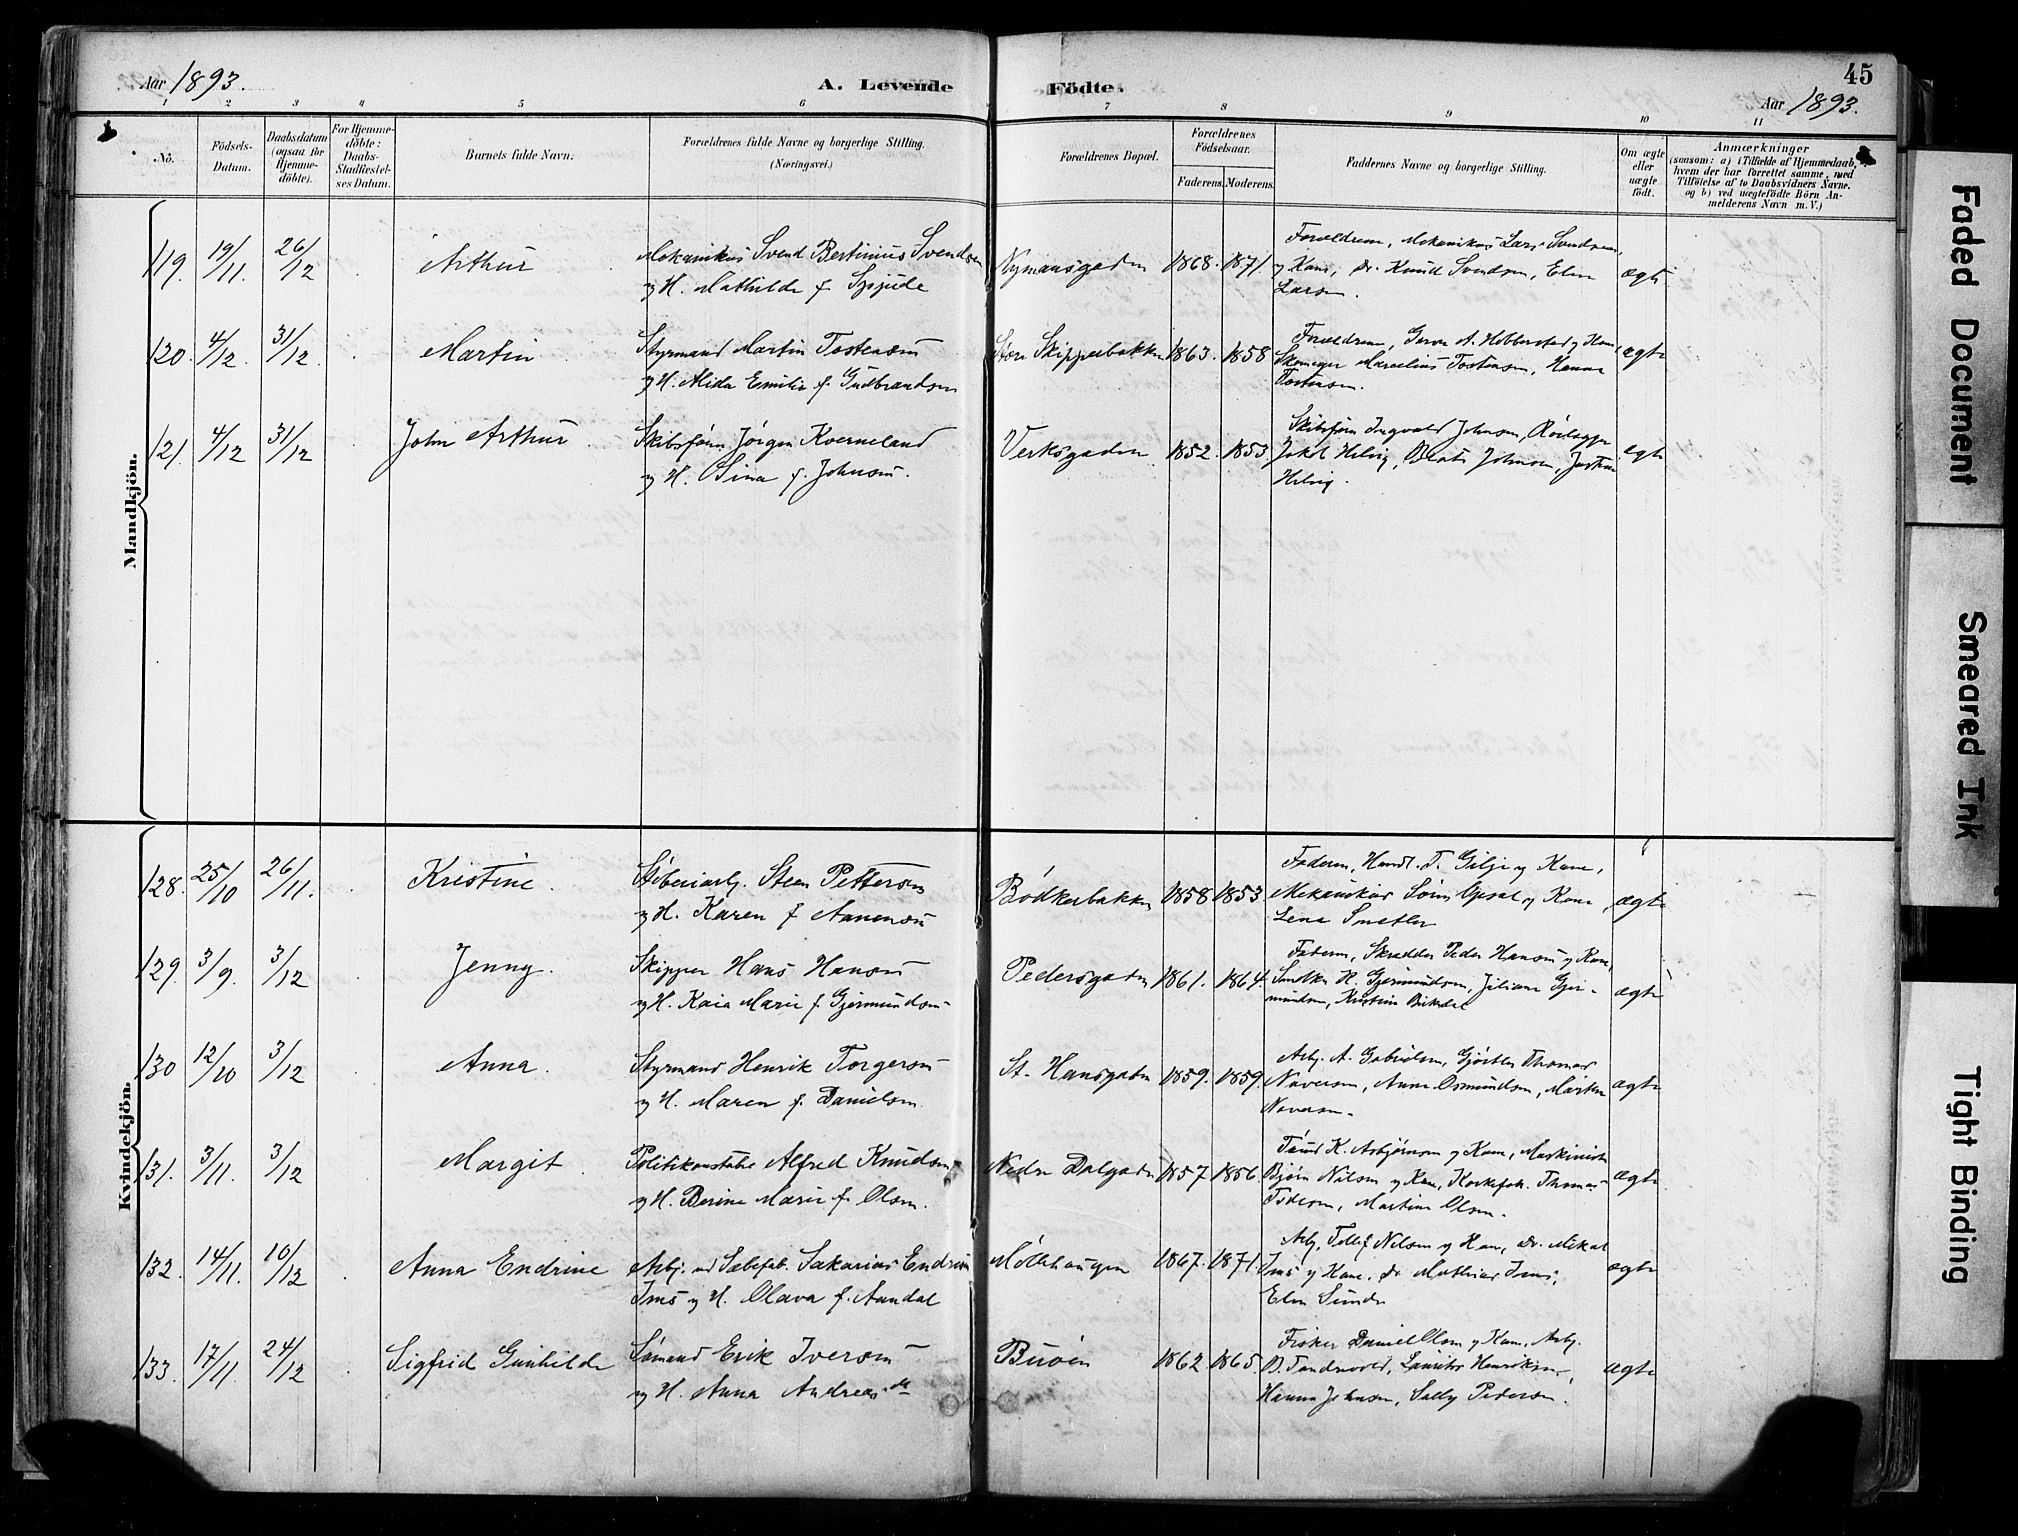 Aar 1893.
A. Levende
Födte.
45
Aar 1893.
1 2 3 4 5 6 7 8 9 10 11
No.
Födsels-Datum.
Daabsdatum (ogsaa for Hjemme-döbte).
For Hjemme-döbte: Daabs-Stadfæstel-ses Datum.
Barnets fulde Navn.
Forældrenes fulde Navne og borgerlige Stilling. (Næringsvei.)
Forældrenes Bopæl.
Forældrenes Födselsaar.
Faderens. Moderens.
Faddernes Navne og borgerlige Stilling.
Om ægte eller uægte födt.
Anmærkninger
(saasom: a) i Tilfælde af Hjemmedaab, hvem der har forrettet samme, med Tilföielse af to Daabsvidners Navne. og b) ved uægtefödte Börn An-melderens Navn m. V.)
Mandkjön.
119. 19/11. 26/12 Arthur Mekanikus Svend Bertinius Svendsen
og H. Mathilde f. Spjude
Nymansgaden 1868. 1871. Forældrene, Mekanikus Lars Svendsen,
og Kone, Do. Knud Svendsen, Elen
Larsen. ægte
120. 4/12. 31/12. Martin Styrmand Martin Tostensen
og H. Alida Emilie f. Gudbrandsen
Store Skipperbakken 1863. 1858 Forældrene, Garver A. Hebbestad og Kone,
Skomager Marcelius Tostensen, Hanna
Tostensen. ægte
121. 4/12 31/12 John Arthur Skibsfører Jørgen Kverneland
og H. Sina f. Johnsen.
Verksgaden 1852. 1853 Skibsfører Ingvald Johnsen,
Jakob Helvig, Beate Johnsen,
Helvig. ægte
Kvindekjön.
128. 25/10 26/11. Kristine. Støberiarb. Steen Pettersen
og H. Karen f. Aanensen
Bødkerbakken 1858 1853. Faderen, Handl. T. Gilje og Kone,
Mekanikus Sören Opsal og Kone,
Lena Smetler ægte
129. 3/9. 3/12 Jenny. Skipper Hans Hansen
og H. Kaia Marie f. Gjermundsen
Pedersgaden 1861. 1864. Faderen, Skrædder Peder Hansen og Kone,
Snedker H. Gjermundsen, Jiliane Gjer-
mundsen, Kristine ægte
130 12/10 3/12 Anna. Styrmand Henrik Torgersen
og H. Maren f. Danielsen.
St. Hansgaden 1859. 1859. Arb. A. Gabrielsen, Gjørtler Thomas
Naversen, Anna Osmundsen, Marten
Naversen. ægte
131. 3/11. 3/12 Margit Politikonstabel Alfred Knudsen
og H. Berine Marie f. Olsen.
Nedre Dalgaden 1857 1856. K. Asbjørnsen og Kone, Maskinist
Bjørn Nilsen og Kone, Thomas
Martine Olsen. ægte
132. 14/11. 10/12 Anna Endrine Arb. ved Sæbefab. Sakarias Endresen
Ims og H. Olava f. Aandal
Møllehaugen 1867. 1871. Arb. Tollef Nilsen og Kone, Do. Mikal
Ims og Kone. Do Mathias Ims,
Elen Sunde ægte
133. 17/11. 24/12 Sigfrid Gunhilde Sømand Erik Iversen
og H. Anna Andreasdtr
Buøen 1862. 1865. Fisker Daniel Olsen og Kone, Arb.
B. Tandrevold, Lauritz Henriksen,
Hanna Johnsen, Sally Pedersen. ægte
Faded Document
Smeared Ink
Tight Binding